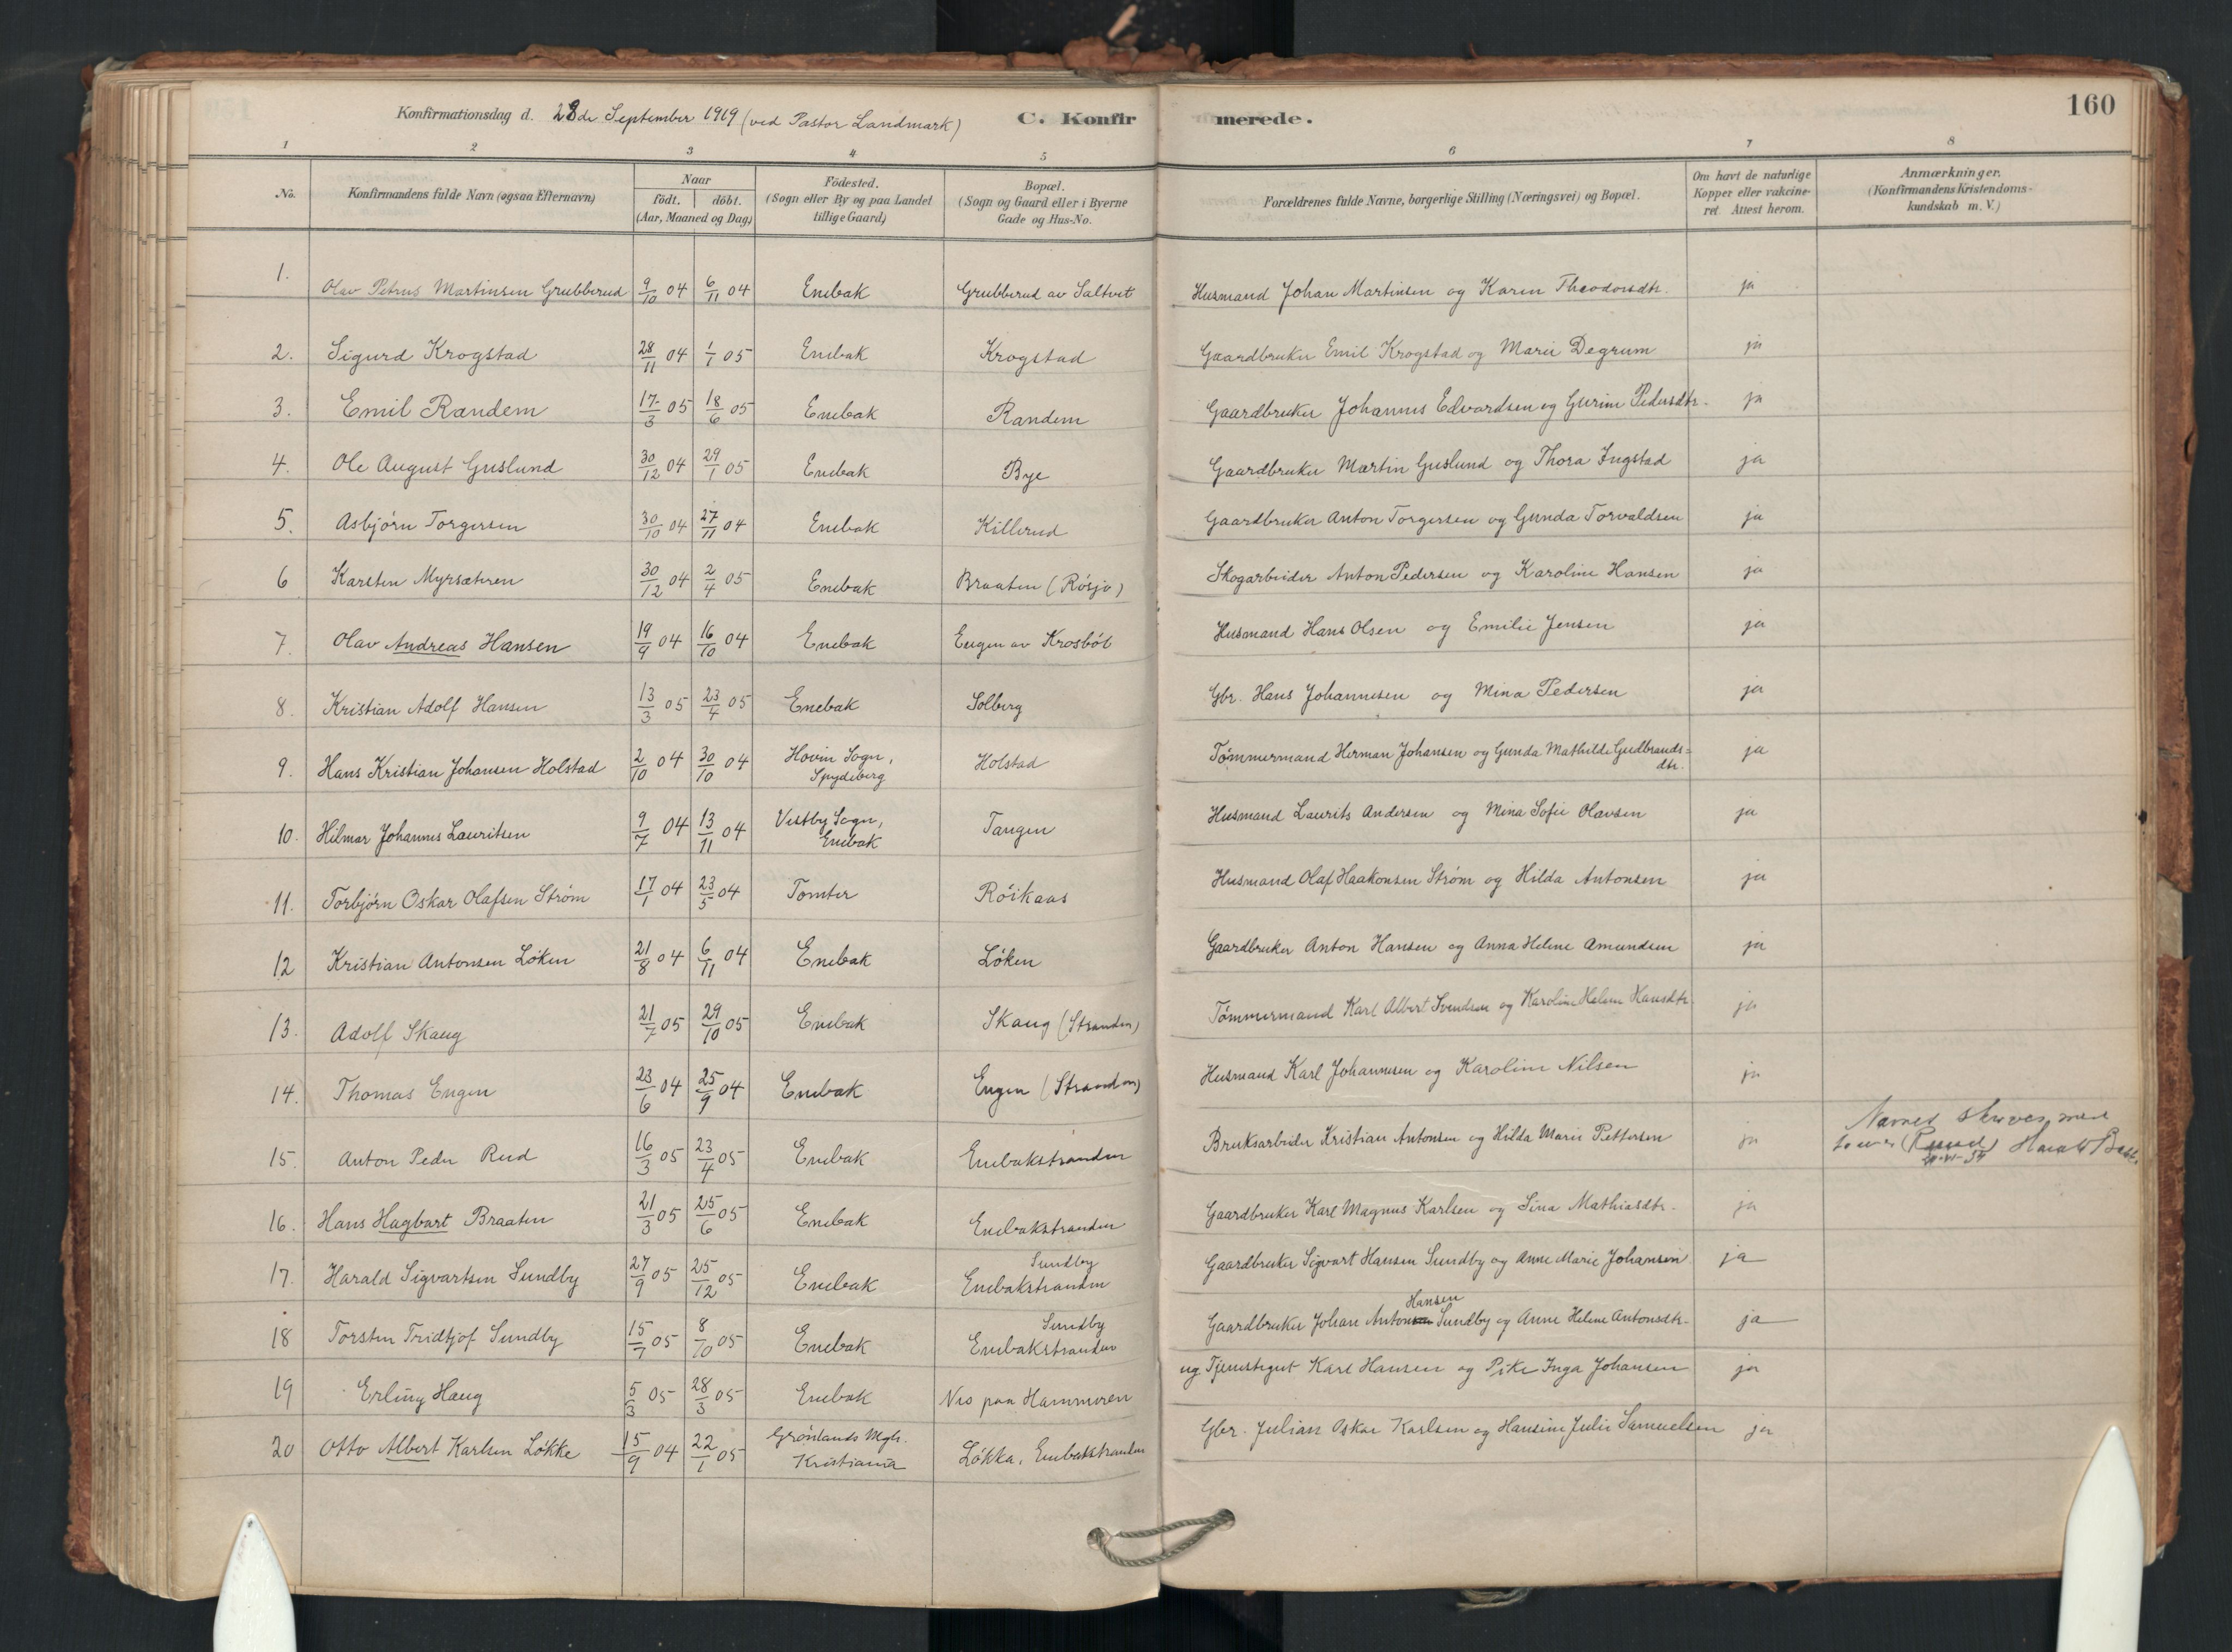 160
Konfirmationsdag d. 28de September 1919 (ved Pastor Landmark) C. Konfirmerede.
1 2 3 4 5 6 7 8
No. Konfirmandens fulde Navn (ogsaa Efternavn) Naar født. døbt. (Aar, Maaned og Dag) Fødested. (Sogn eller By og paa Landet tillige Gaard) Bopæl. (Sogn og Gaard eller i Byerne Gade og Hus-No. Forældrenes fulde Navne, borgerlige Stilling (Næringsvei) og Bopæl. Om havt de naturlige Kopper eller vakcineret. Attest herom. Anmærkninger. (Konfirmandens Kristendomskundskab m. V.)
1. Olav Petrus Martinsen Grubberud 9/10 04 6/11 04 Enebak Grubberud av Saltvet Husmand Johan Martinsen og Karen Theodorsdtr. ja
2. Sigurd Krogstad 28/11 04 1/1 05 Enebak Krogstad Gaardbruker Emil Krogstad og Marie Degrum ja
3. Emil Randem 17/3 05 18/6 05 Enebak Randem Gaardbruker Johannes Edvardsen og Gurine Pedersdtr. ja
4. Ole August Guslund 30/12 04 29/1 05 Enebak Bye Gaardbruker Martin Guslund og Thora Ingstad ja
5. Asbjørn Torgersen 30/10 04 27/11 04 Enebak Killerud Gaardbruker Anton Torgersen og Gunda Torvaldsen ja
6 Karsten Myrsæteren 30/12 04 2/4 05 Enebak Braaten (Røsjø) Skogarbeider Anton Pedersen og Karoline Hansen ja
7. Olav Andreas Hansen 19/9 04 16/10 04 Enebak Engen av Krosbøl Husmand Hans Olsen og Emilie Jensen ja
8. Kristian Adolf Hansen 13/3 05 23/4 05 Enebak Solberg Gbr. Hans Johannesen og Mina Pedersen ja
9. Hans Kristian Johansen Holstad 2/10 04 30/10 04 Hovin Sogn, Spydeberg Holstad Tømmermand Herman Johansen og Gunda Mathilde Gudbrands=dtr. ja
10. Hilmar Johannes Lauritsen 9/7 04 13/11 04 Vestby Sogn, Enebak Tangen Husmand Laurits Andersen og Mina Sofie Olavsen ja
11. Torbjørn Oskar Olafsen Strøm 17/1 04 23/5 04 Tomter Røikaas Husmand Olaf Haakonsen Strøm og Hilda Antonsen ja
12 Kristian Antonsen Løken 21/8 04 6/11 04 Enebak Løken Gaardbruker Anton Hansen og Anna Helene Amundsen ja
13. Adolf Skaug 21/7 05 29/10 05 Enebak Skaug (Stranden) Tømmermand Karl Albert Svendsen og Karoline Helene Hansdtr. ja
14. Thomas Engen 23/6 04 25/9 04 Enebak Engen (Stranden) Husmand Karl Johannesen og Karoline Nilsen ja
15. Anton Peder Rud 16/3 05 23/4 05 Enebak Enebakstranden Bruksarbeider Kristian Antonsen og Hilda Marie Pettersen ja Navnet skrives med to u'er (Ruud)
16. Hans Hagbart Braaten 21/3 05 25/6 05 Enebak Enebakstranden Gaardbruker Karl Magnus Karlsen og Lina Mathiasdtr. ja
17. Harald Sigvartsen Sundby 27/9 05 25/12 05 Enebak Sundby Enebakstranden Gaardbruker Sigvart Hansen Sundby og Anne Marie Johansen ja
18 Torsten Fridtjof Sundby 15/7 05 8/10 05 Enebak Sundby Enebakstranden Gaardbruker Johan Antonsen Hansen Sundby og Anne Helene Antonsdtr. ja
19 Erling Haug 5/3 05 28/3 05 Enebak Nes paa Hammeren ug. Tjenestegut Karl Hansen og Pike Inga Johansen ja
20 Otto Albert Karlsen Løkke 15/9 04 22/1 05 Grønlands Mgh. Kristiania Løkka, Enebakstranden Gbr. Julian Oskar Karlsen og Hansine Julie Samuelsen ja